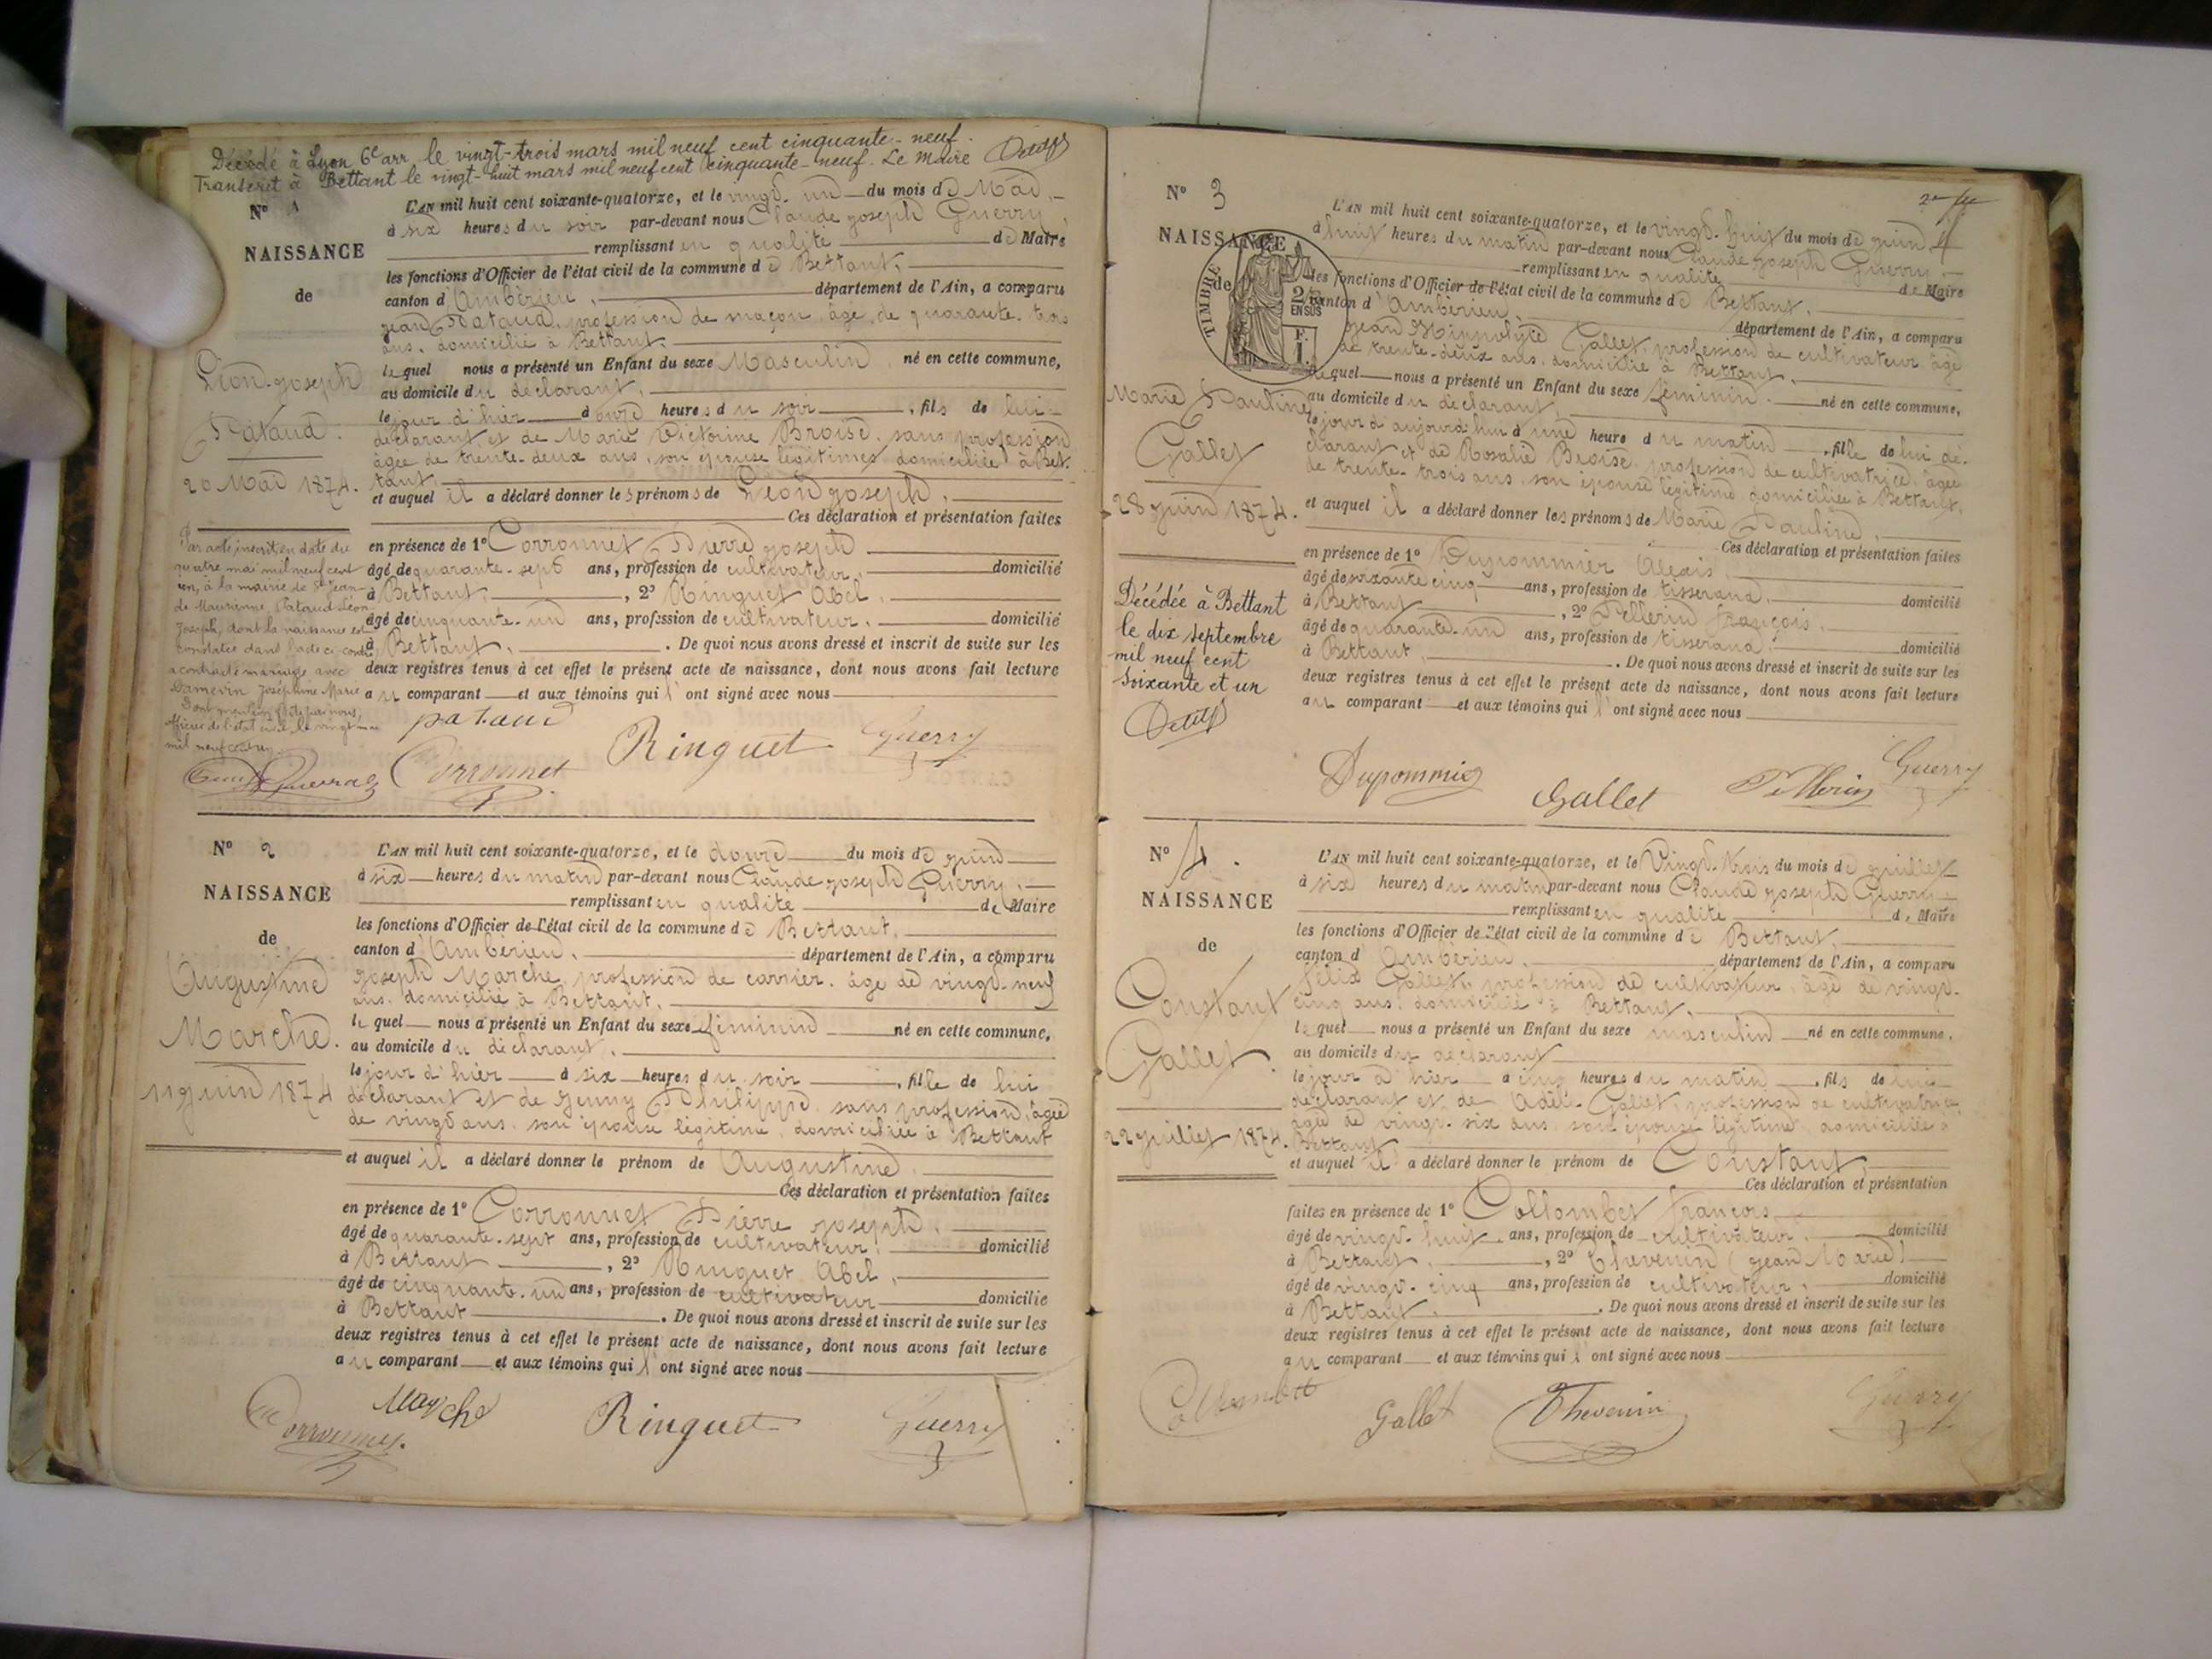 Décédé à Lyon 6e arr le vingt-trois mars mil neuf cent cinquante-neuf.
Transcrit à Bettant le vingt-huit mars mil neuf cent cinquante-neuf. Le Maire
N° 1
NAISSANCE
de
Léon-joseph
Pataud.
20 Mai 1874.
Par acte inscrit en date du
quatre mai mil neuf cent
un, à la mairie de St Jean-
de Maurienne, Pataud Léon
Joseph, dont la naissance est
constatée dans l'acte ci-contre
a contracté mariage avec
Damevin Joséphine Marie
Dont mention faite par nous,
officier de l'état civil, le vingt mai
mil neuf cent un.
L'AN mil huit cent soixante-quatorze, et le vingt-un du mois de Mai
à six heures du soir par-devant nous Claude joseph Guerry,
remplissant en qualité de Maire
les fonctions d'Officier de l'état civil de la commune de Bettant,
canton d'Ambérieu, département de l'Ain, a comparu
jean Pataud, profession de maçon, âgé de quarante-trois
ans, domicilié à Bettant
lequel nous a présenté un Enfant du sexe Masculin, né en cette commune,
au domicile du déclarant,
le jour d'hier à onze heures du soir, fils de lui-
déclarant et de Marie Victorine Broise, sans profession
âgée de trente-deux ans, son épouse légitime, domiciliée à Bet-
tant,
et auquel il a déclaré donner les prénoms de Léon joseph,
Ces déclaration et présentation faites
en présence de 1° Corronnet Pierre joseph
âgé de quarante-sept ans, profession de cultivateur, domicilié
à Bettant, 2° Ringuet Abel,
âgé de cinquante-un ans, profession de cultivateur, domicilié
à Bettant, . De quoi nous avons dressé et inscrit de suite sur les
deux registres tenus à cet effet le présent acte de naissance, dont nous avons fait lecture
au comparant et aux témoins qui l'ont signé avec nous
pataud
Corronnet Ringuet Guerry
N° 2
NAISSANCE
de
Augustine
Marche.
11 juin 1874
L'AN mil huit cent soixante-quatorze, et le douze du mois de juin
à six heures du matin par-devant nous Claude joseph Guerry,
remplissant en qualité de Maire
les fonctions d'Officier de l'état civil de la commune de Bettant,
canton d'Ambérieu, département de l'Ain, a comparu
joseph Marche, profession de carrier, âgé de vingt-neuf
ans, domicilié à Bettant,
lequel nous a présenté un Enfant du sexe féminin né en cette commune,
au domicile du déclarant,
le jour d'hier à six heures du soir, fille de lui
déclarant et de jenny Philippe, sans profession, âgée
de vingt ans, son épouse légitime, domiciliée à Bettant
et auquel il a déclaré donner le prénom de Augustine,
Ces déclaration et présentation faites
en présence de 1° Corronnet Pierre joseph,
âgé de quarante-sept ans, profession de cultivateur, domicilié
à Bettant, 2° Ringuet Abel,
âgé de cinquante-un ans, profession de cultivateur domicilié
à Bettant . De quoi nous avons dressé et inscrit de suite sur les
deux registres tenus à cet effet le présent acte de naissance, dont nous avons fait lecture
au comparant et aux témoins qui l'ont signé avec nous
Corronnet Marche Ringuet Guerry
N° 3
NAISSANCE
de
TIMBRE
2/10 EN SUS
F. 1.
Marie Pauline
Gallet
28 juin 1874.
Décédée à Bettant
le dix septembre
mil neuf cent
soixante et un
L'AN mil huit cent soixante-quatorze, et le vingt-huit du mois de juin
à huit heures du matin par-devant nous Claude joseph Guerry
remplissant en qualité de Maire
les fonctions d'Officier de l'état civil de la commune de Bettant,
canton d'Ambérieu, département de l'Ain, a comparu
jean Hippolyte Gallet, profession de cultivateur, âgé
de trente-deux ans, domicilié à Bettant,
lequel nous a présenté un Enfant du sexe féminin né en cette commune,
au domicile du déclarant,
le jour d'aujourd'hui à une heure du matin, fille de lui dé-
clarant et de Rosalie Broise, profession de cultivatrice, âgée
de trente-trois ans, son épouse légitime, domiciliée à Bettant,
et auquel il a déclaré donner les prénoms de Marie Pauline,
Ces déclaration et présentation faites
en présence de 1° Dupommier Alexis,
âgé de soixante cinq ans, profession de tisserand, domicilié
à Bettant, 2° Pellerin françois,
âgé de quarante-un ans, profession de tisserand, domicilié
à Bettant, . De quoi nous avons dressé et inscrit de suite sur les
deux registres tenus à cet effet le présent acte de naissance, dont nous avons fait lecture
au comparant et aux témoins qui l'ont signé avec nous
Dupommier Gallet Pellerin Guerry
N° 4.
NAISSANCE
de
Constant
Gallet.
22 juillet 1874.
L'AN mil huit cent soixante-quatorze, et le Vingt-trois du mois de juillet
à six heures du matin par-devant nous Claude joseph Guerry
remplissant en qualité de Maire
les fonctions d'Officier de l'état civil de la commune de Bettant,
canton d'Ambérieu, département de l'Ain, a comparu
félix Gallet, profession de cultivateur, âgé de vingt-
cinq ans, domicilié à Bettant,
lequel nous a présenté un Enfant du sexe masculin né en cette commune,
au domicile du déclarant
le jour d'hier à cinq heures du matin, fils de lui-
déclarant et de Adèle Gallet, profession de cultivatrice
âgée de vingt-six ans, son épouse légitime, domiciliée à
Bettant
et auquel il a déclaré donner le prénom de Constant,
Ces déclaration et présentation
faites en présence de 1° Collombet françois
âgé de vingt-huit ans, profession de cultivateur, domicilié
à Bettant, 2° Thevenin (jean Marie)
âgé de vingt-cinq ans, profession de cultivateur, domicilié
à Bettant, . De quoi nous avons dressé et inscrit de suite sur les
deux registres tenus à cet effet le présent acte de naissance, dont nous avons fait lecture
au comparant et aux témoins qui l'ont signé avec nous
Collombet Gallet Thevenin Guerry